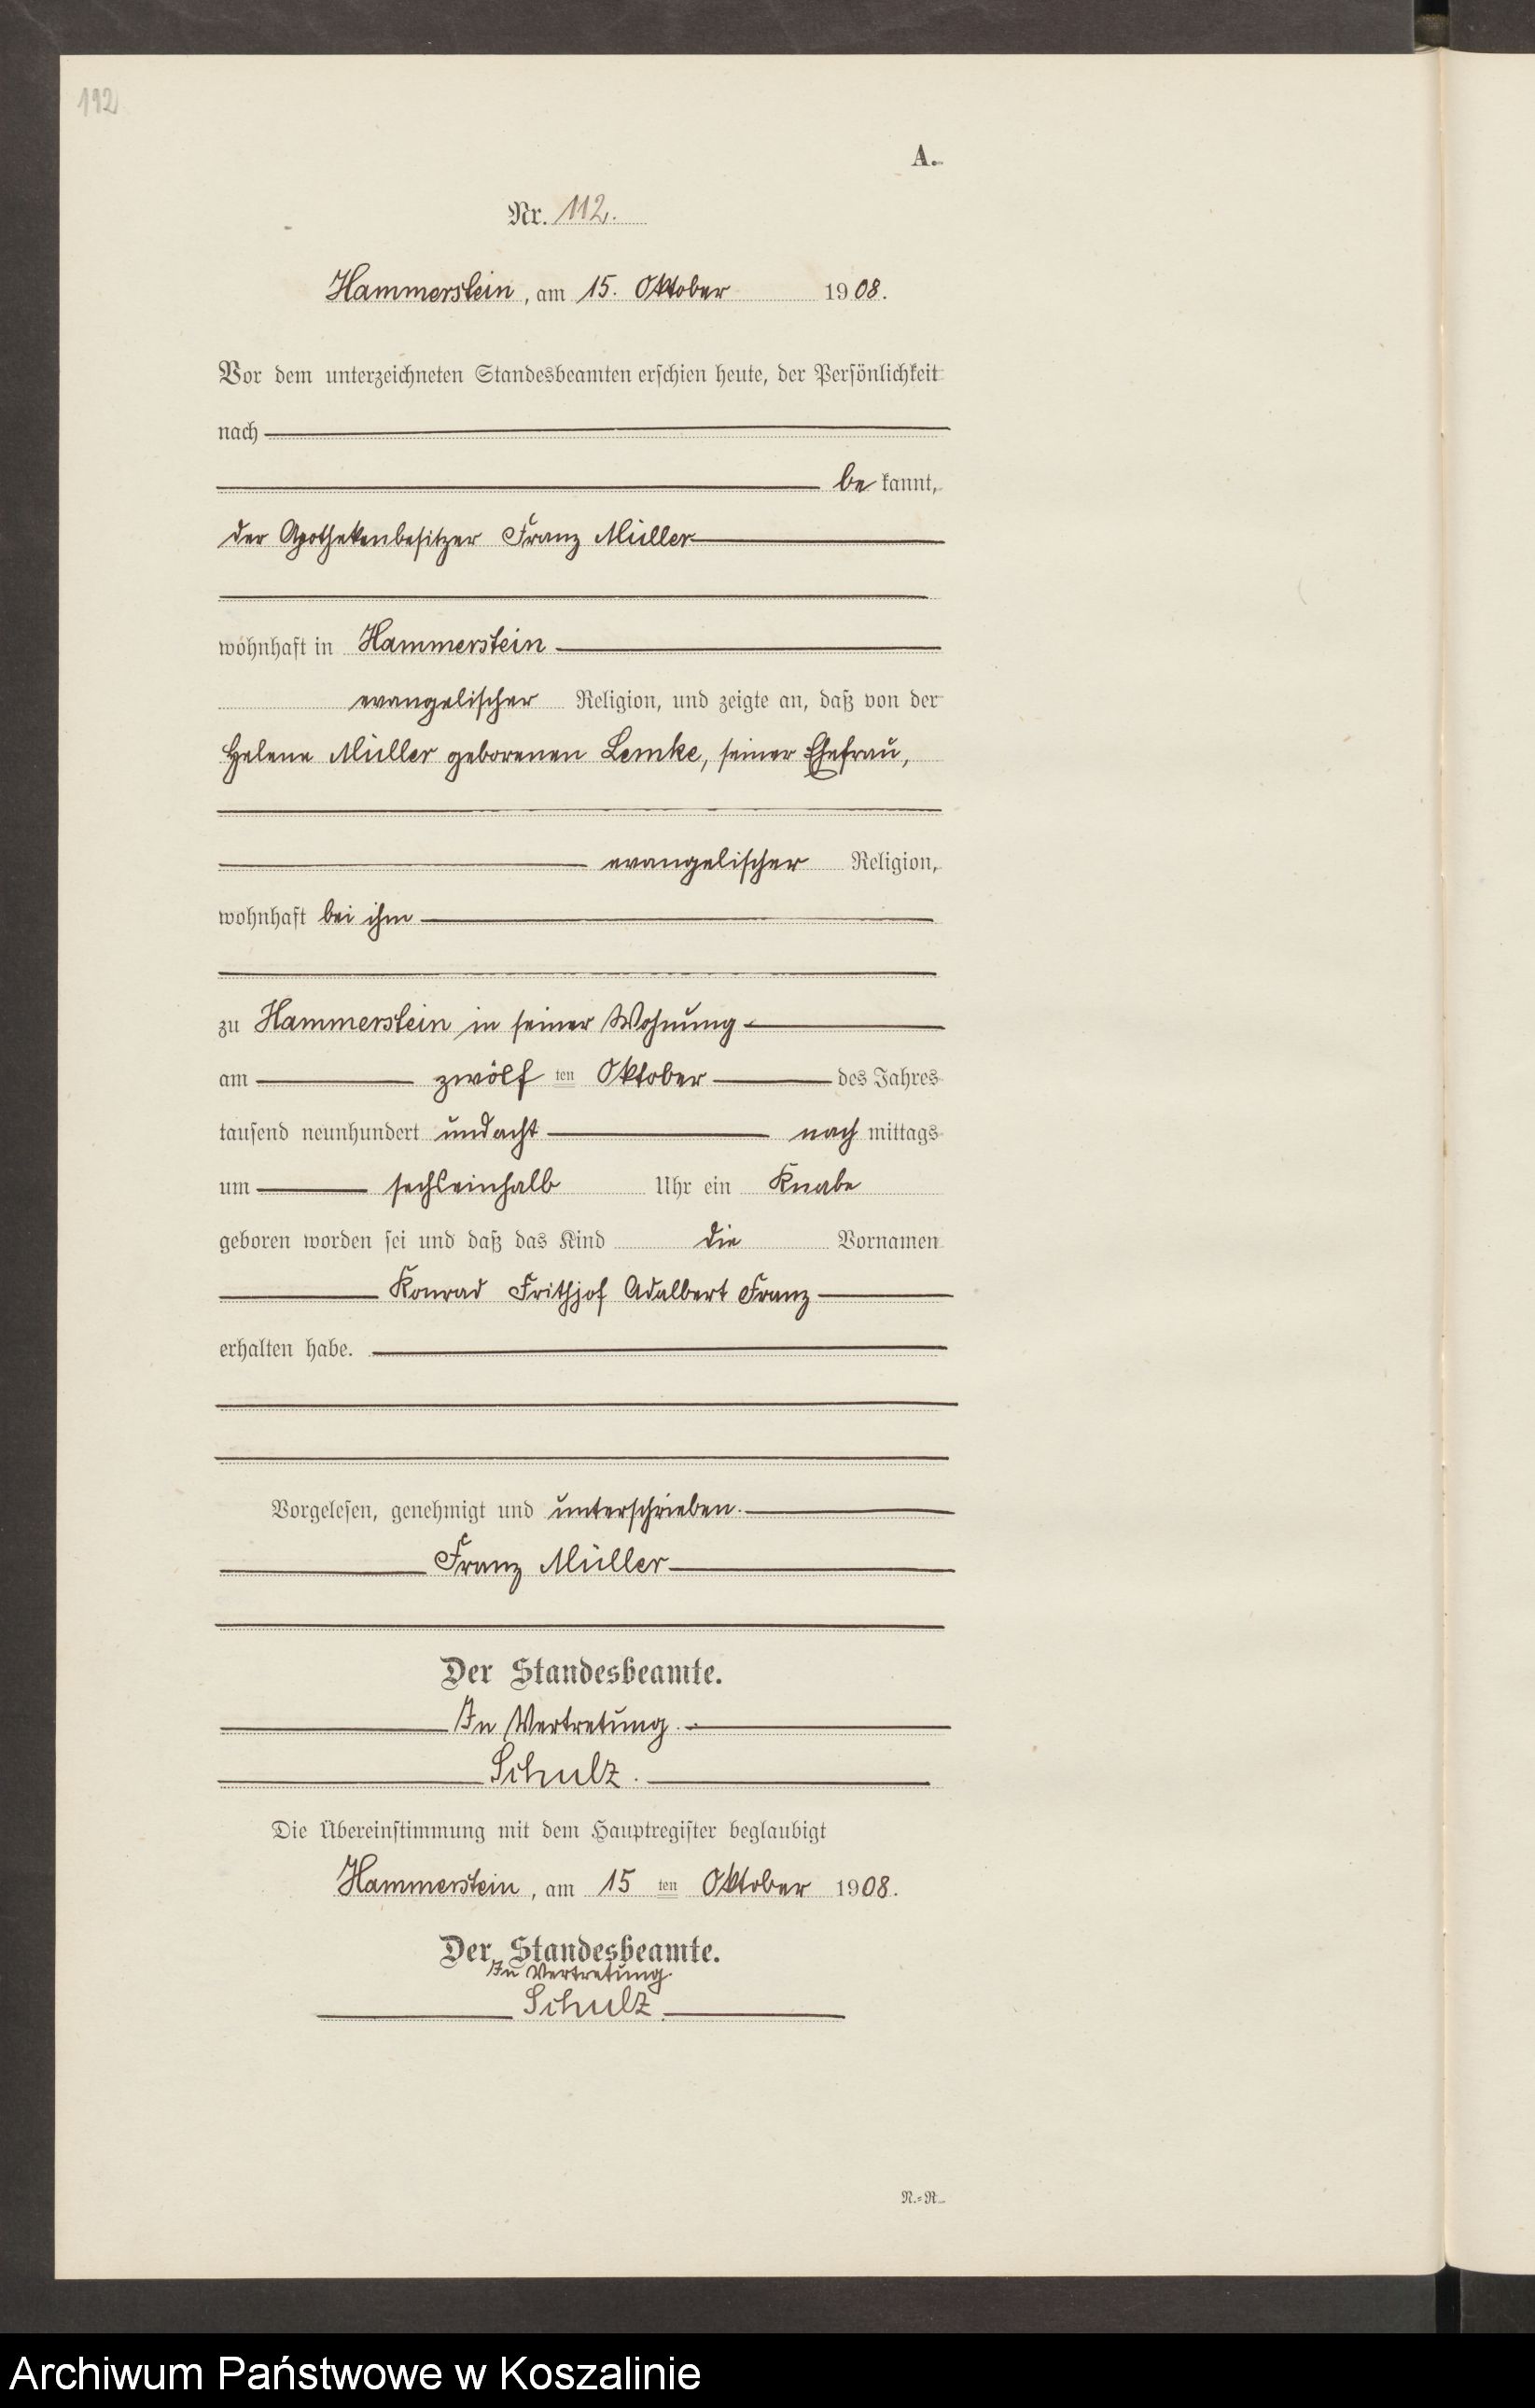 112
A.
Nr. 112.
Hammerstein, am 15. Oktober 1908.
Vor dem unterzeichneten Standesbeamten erschien heute, der Persönlichkeit
nach
be kannt,
der Apothekenbesitzer Franz Müller
wohnhaft in Hammerstein
evangelischer Religion, und zeigte an, daß von der
Helene Müller geborenen Lemke, seiner Ehefrau,
evangelischer Religion,
wohnhaft bei ihm
zu Hammerstein in seiner Wohnung
am zwölf ten Oktober des Jahres
tausend neunhundert undacht nach mittags
um sechseinhalb Uhr ein Knabe
geboren worden sei und daß das Kind die Vornamen
Konrad Frithjof Adalbert Franz
erhalten habe.
Vorgelesen, genehmigt und unterschrieben.
Franz Müller
Der Standesbeamte.
In Vertretung.
Schulz.
Die Übereinstimmung mit dem Hauptregister beglaubigt
Hammerstein, am 15 ten Oktober 1908.
Der Standesbeamte.
In Vertretung.
Schulz.
N.=R.
Archiwum Państwowe w Koszalinie